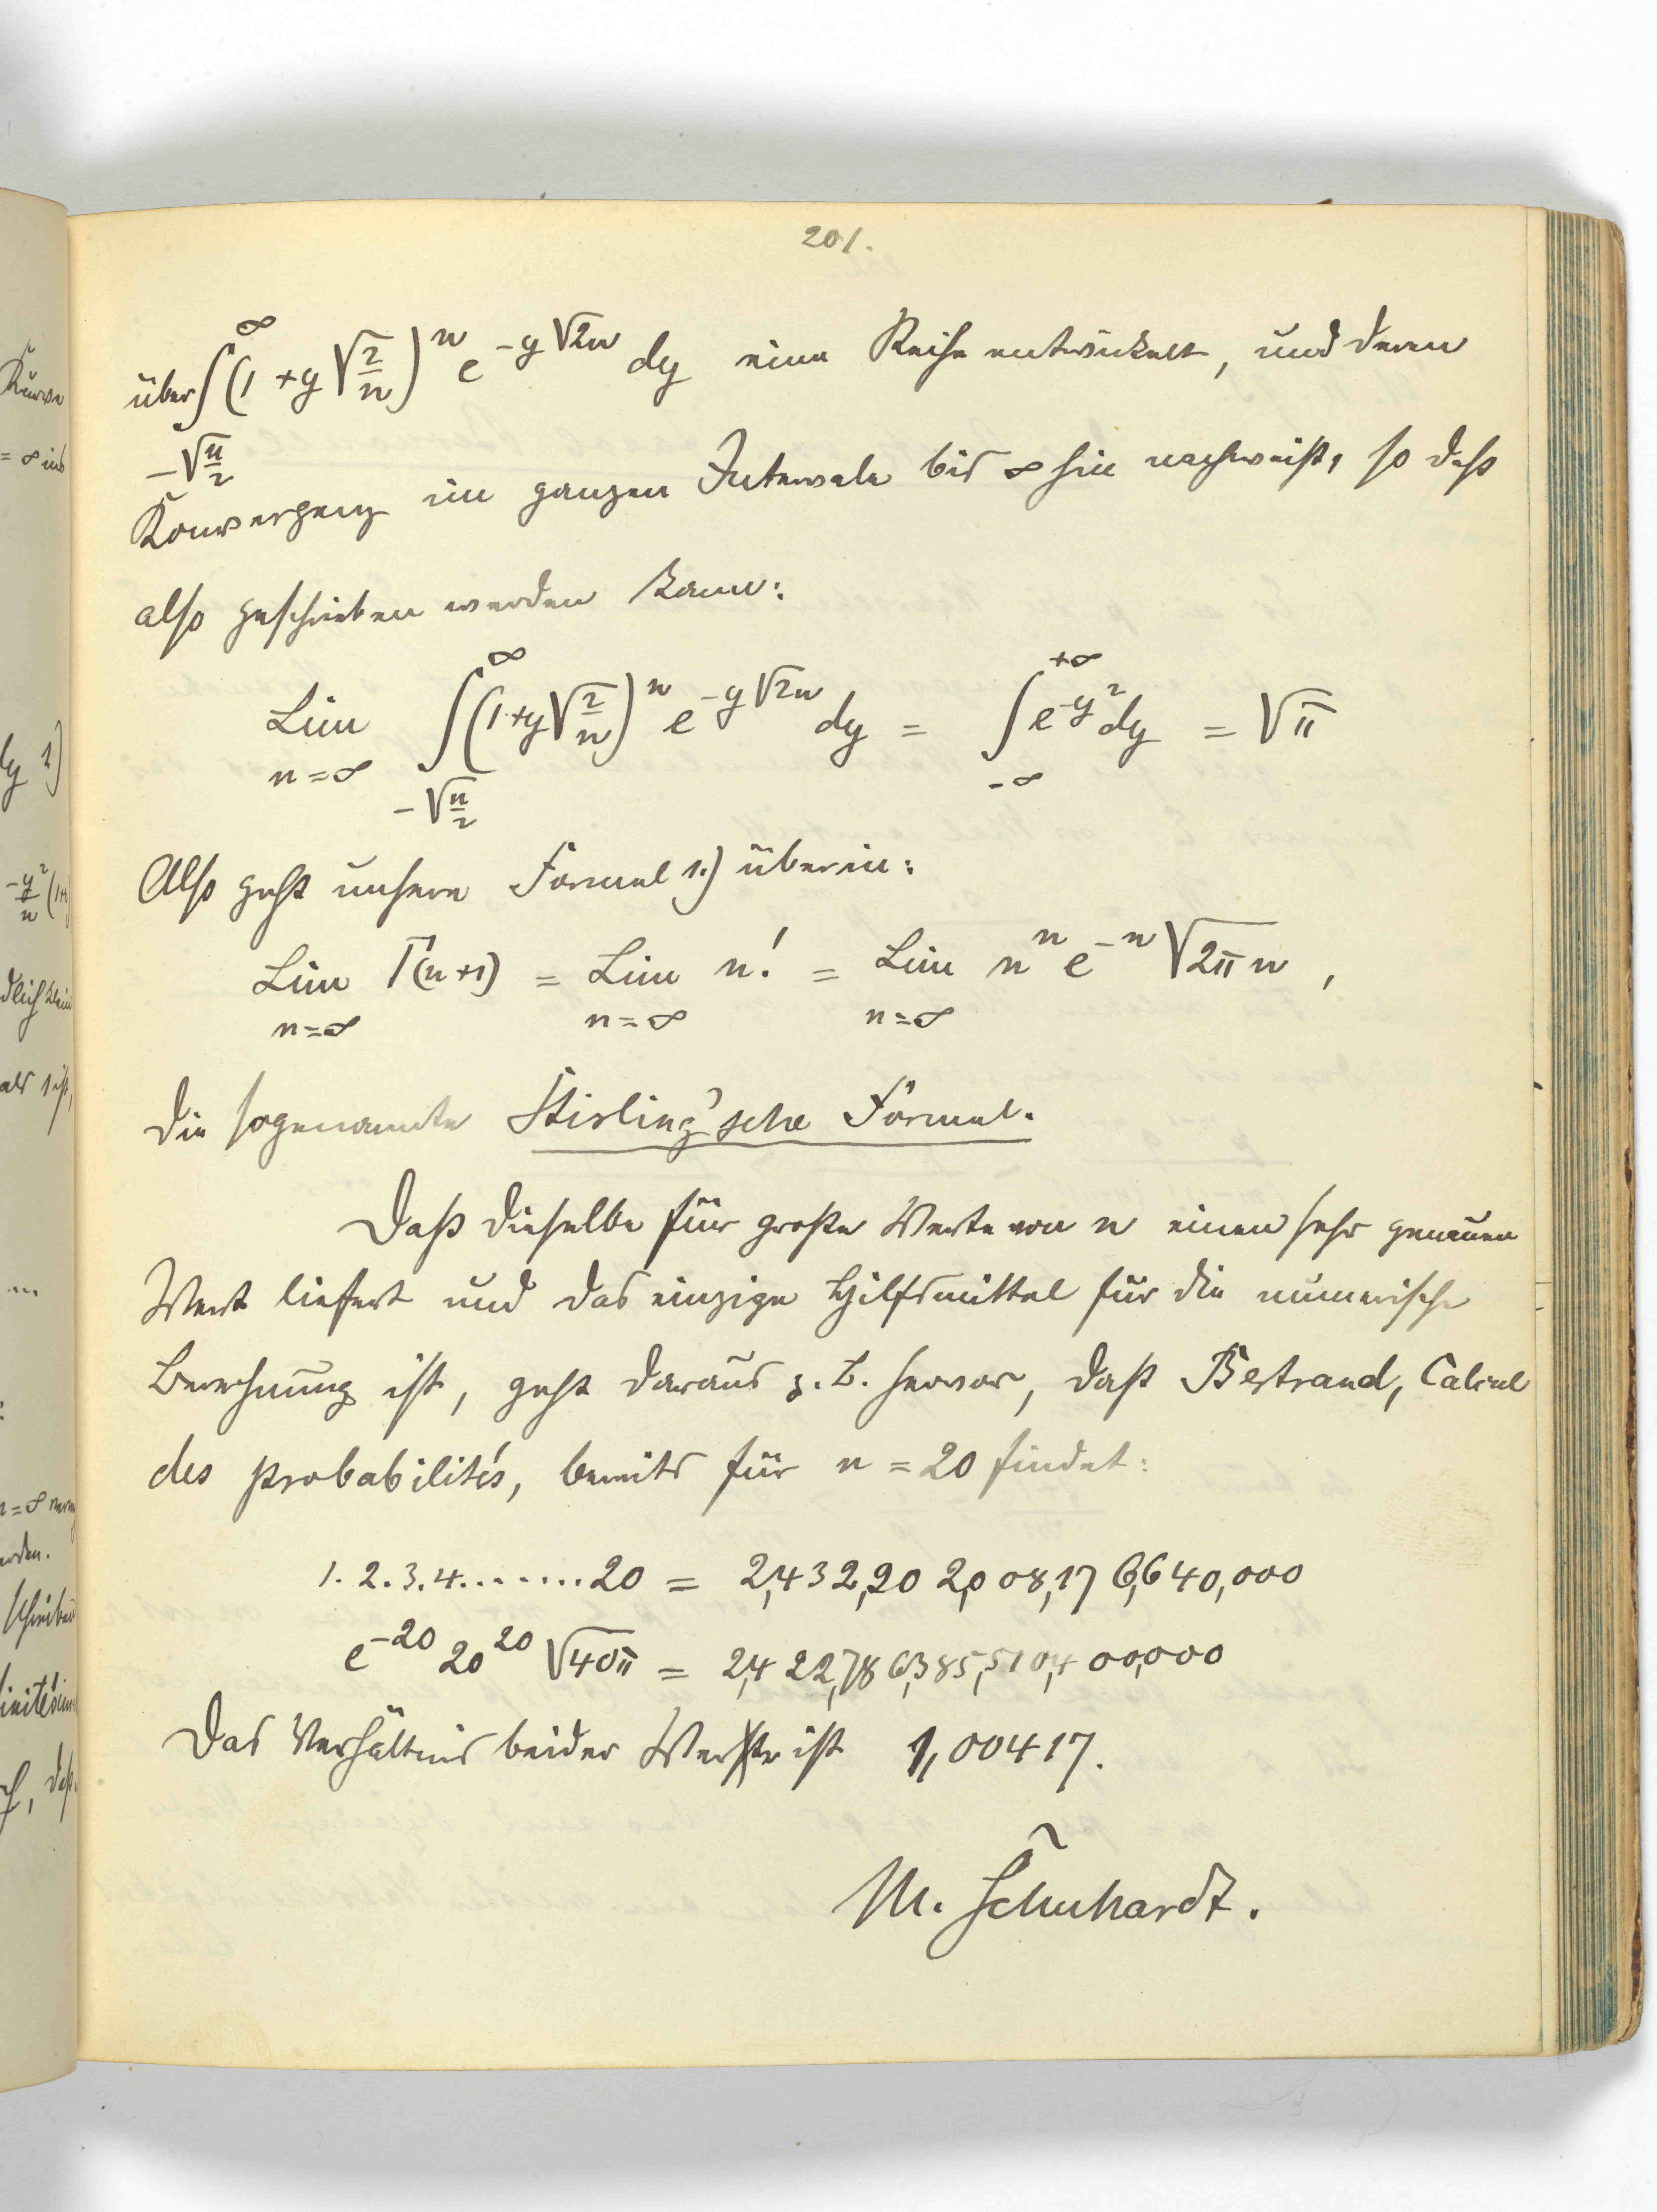 201.
über ∫_{-√(n/2)}^{∞} (1 + y √(2/n))^n e^{-y √2n} dy eine Reihe entwickelt, und deren
Konvergenz im ganzen Intervale bis ∞ hin nachweist, so daß
also geschrieben werden kann:
Lim_{n=∞} ∫_{-√(n/2)}^{∞} (1+y√(2/n))^n e^{-y√2n} dy = ∫_{-∞}^{+∞} e^{-y²} dy = √π
Also geht unsere Formel 1.) über in:
Lim_{n=∞} Γ(n+1) = Lim_{n=∞} n! = Lim_{n=∞} n^n e^{-n} √2πn ,
die sogenannte Stirling'sche Formel.
Daß dieselbe für große Werte von n einen sehr genauen
Wert liefert und das einzige Hilfsmittel für die numerische
Berechnung ist, geht daraus z. B. hervor, daß Bertrand, Calcul
des probabilités, bereits für n = 20 findet:
1. 2. 3. 4. ....... 20 = 2,432,902,008,176,640,000
e^{-20} 20^{20} √40π = 2,422,786,385,510,400,000
Das Verhältnis beider Werte ist 1,00417.
M. Schuhardt.